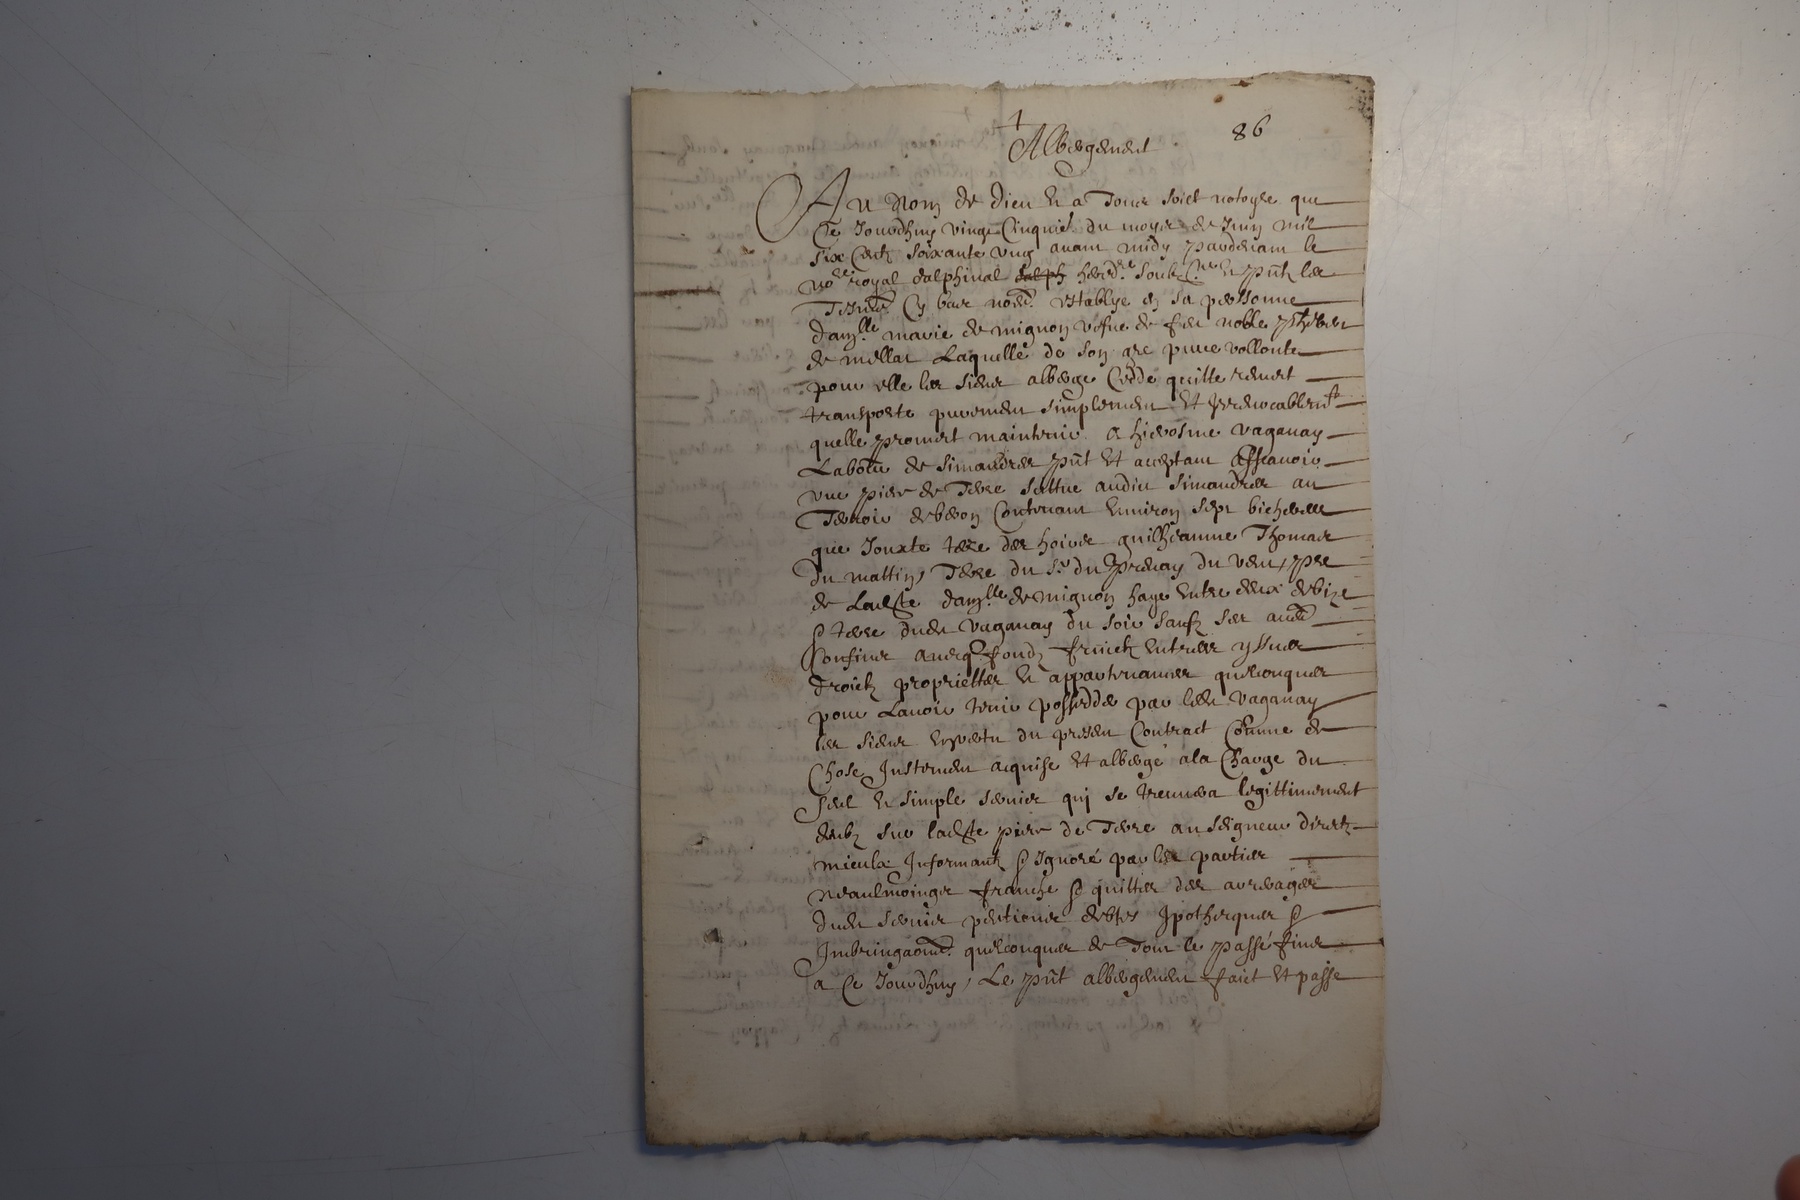 86
Albergement
Au Nom de Dieu Et a Tous soict notoyre que
Ce Jourdhuy vingt Cinquie. du moys de Juin mil
six Centz soixante ung avant midy pardevant le
nore royal dalphinal dalph hered.re soubz.ne Et pntz les
Tesmoings Cy bas nomes establye en sa personne
damlle marie de mignon vefve de feu noble
de mellat Laquelle de son gre pure vollonte
pour elle les siens alberge Cedde quitte remet
transporte purement simplement Et irrevocablemt
quelle promet maintenir a hierosme vaganay
Labour de simandres pnt Et aceptant assavoir
une piece de Terre scittue audit simandres au
Terroir debron Contenant Environ sept bicherees
que Jouxte terre des hoirs guilheaume Thomas
du mattin, Terre du sr du du vent, pre
de Ladite damlle de mignon haye Entre deux debize
& terre dudit vaganay du soir saufz ses au.
Confins avecq fondz fruictz Entrees yssues
droictz proprietes Et appartenances quelconques
pour Lavoir tenir possedder par ledit vaganay
les siens En vertu du present Contract Comme de
Chose Justement acquise Et alberge a la Charge du
seul Et simple servis qui se treuvera legittimement
deubz sur ladite piece de Terre au seigneur direct
mieulx Informantz & Ignoré par les parties
neaulmoings franche & quitte des arreages
dudit servis pentions debtes Ipotheques &
Imbringaons quelconques de Tout le passé Jusques
a Ce Jourdhuy, Le pnt albergement faict Et passe